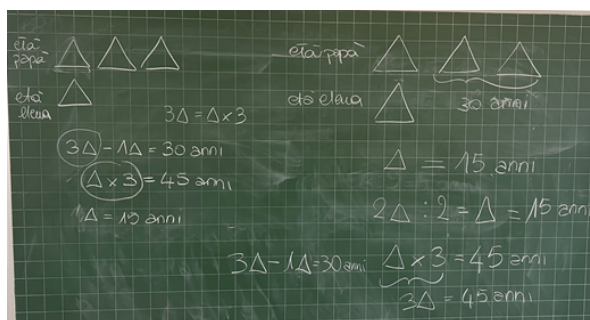 età papà △ △ △
età elena △
3△ = △ x 3
3△ - 1△ = 30 anni
△ x 3 = 45 anni
1△ = 15 anni
età papà △ △ △
30 anni
età elena △
△ = 15 anni
2△ : 2 = △ = 15 anni
3△ - 1△ = 30 anni
△ x 3 = 45 anni
3△ = 45 anni